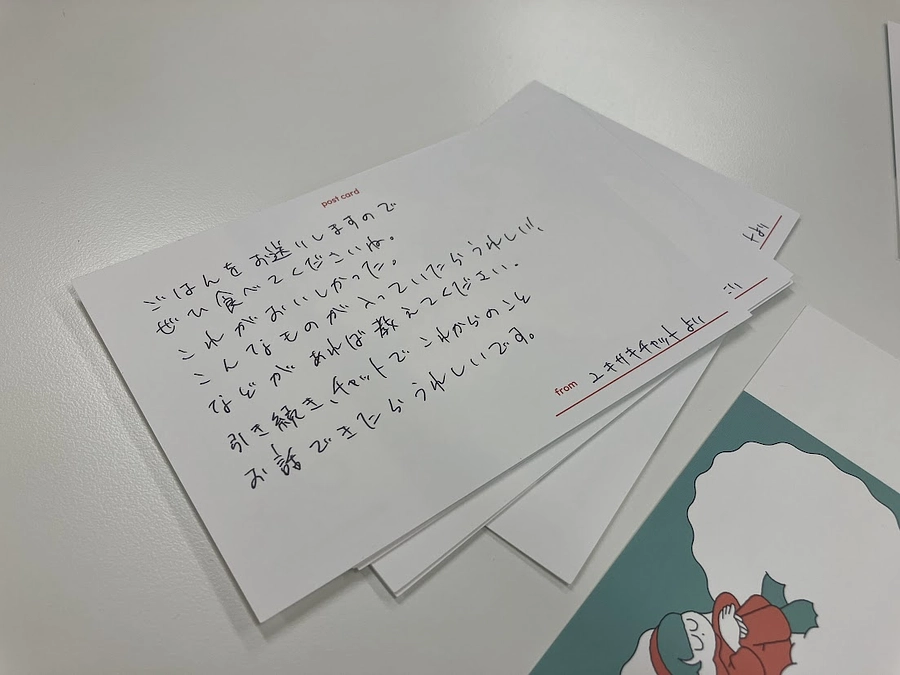 post card
ごはんをお送りしますので
ぜひ食べてくださいね。
これがおいしかった。
こんなものが入っていたらうれしい!、
などがあれば教えてください.
引き続き、チャットでこれからのこと
お話できたらうれしいです。
from ユキサキチャットより
より